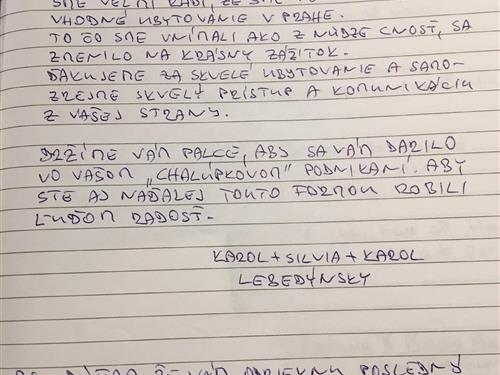 SME VEĽMI RADI, ŽE SME TO
VHODNÉ UBYTOVANIE V PRAHE.
TO ČO SME VNÍMALI AKO Z NÚDZE CNOSŤ, SA
ZMENILO NA KRÁSNY ZÁŽITOK.
ĎAKUJEME ZA SKVELÉ UBYTOVANIE A SAMO-
ZREJME SKVELÝ PRÍSTUP A KOMUNIKÁCIU
Z VAŠEJ STRANY.
DRŽÍME VÁM PALCE, ABY SA VÁM DARILO
VO VAŠOM „CHALÚPKOVOM" PODNIKANÍ. ABY
STE AJ NAĎALEJ TOUTO FORMOU ROBILI
ĽUĎOM RADOSŤ.
KAROL + SILVIA + KAROL
LEBEDYNSKY
POSLEDNÝ